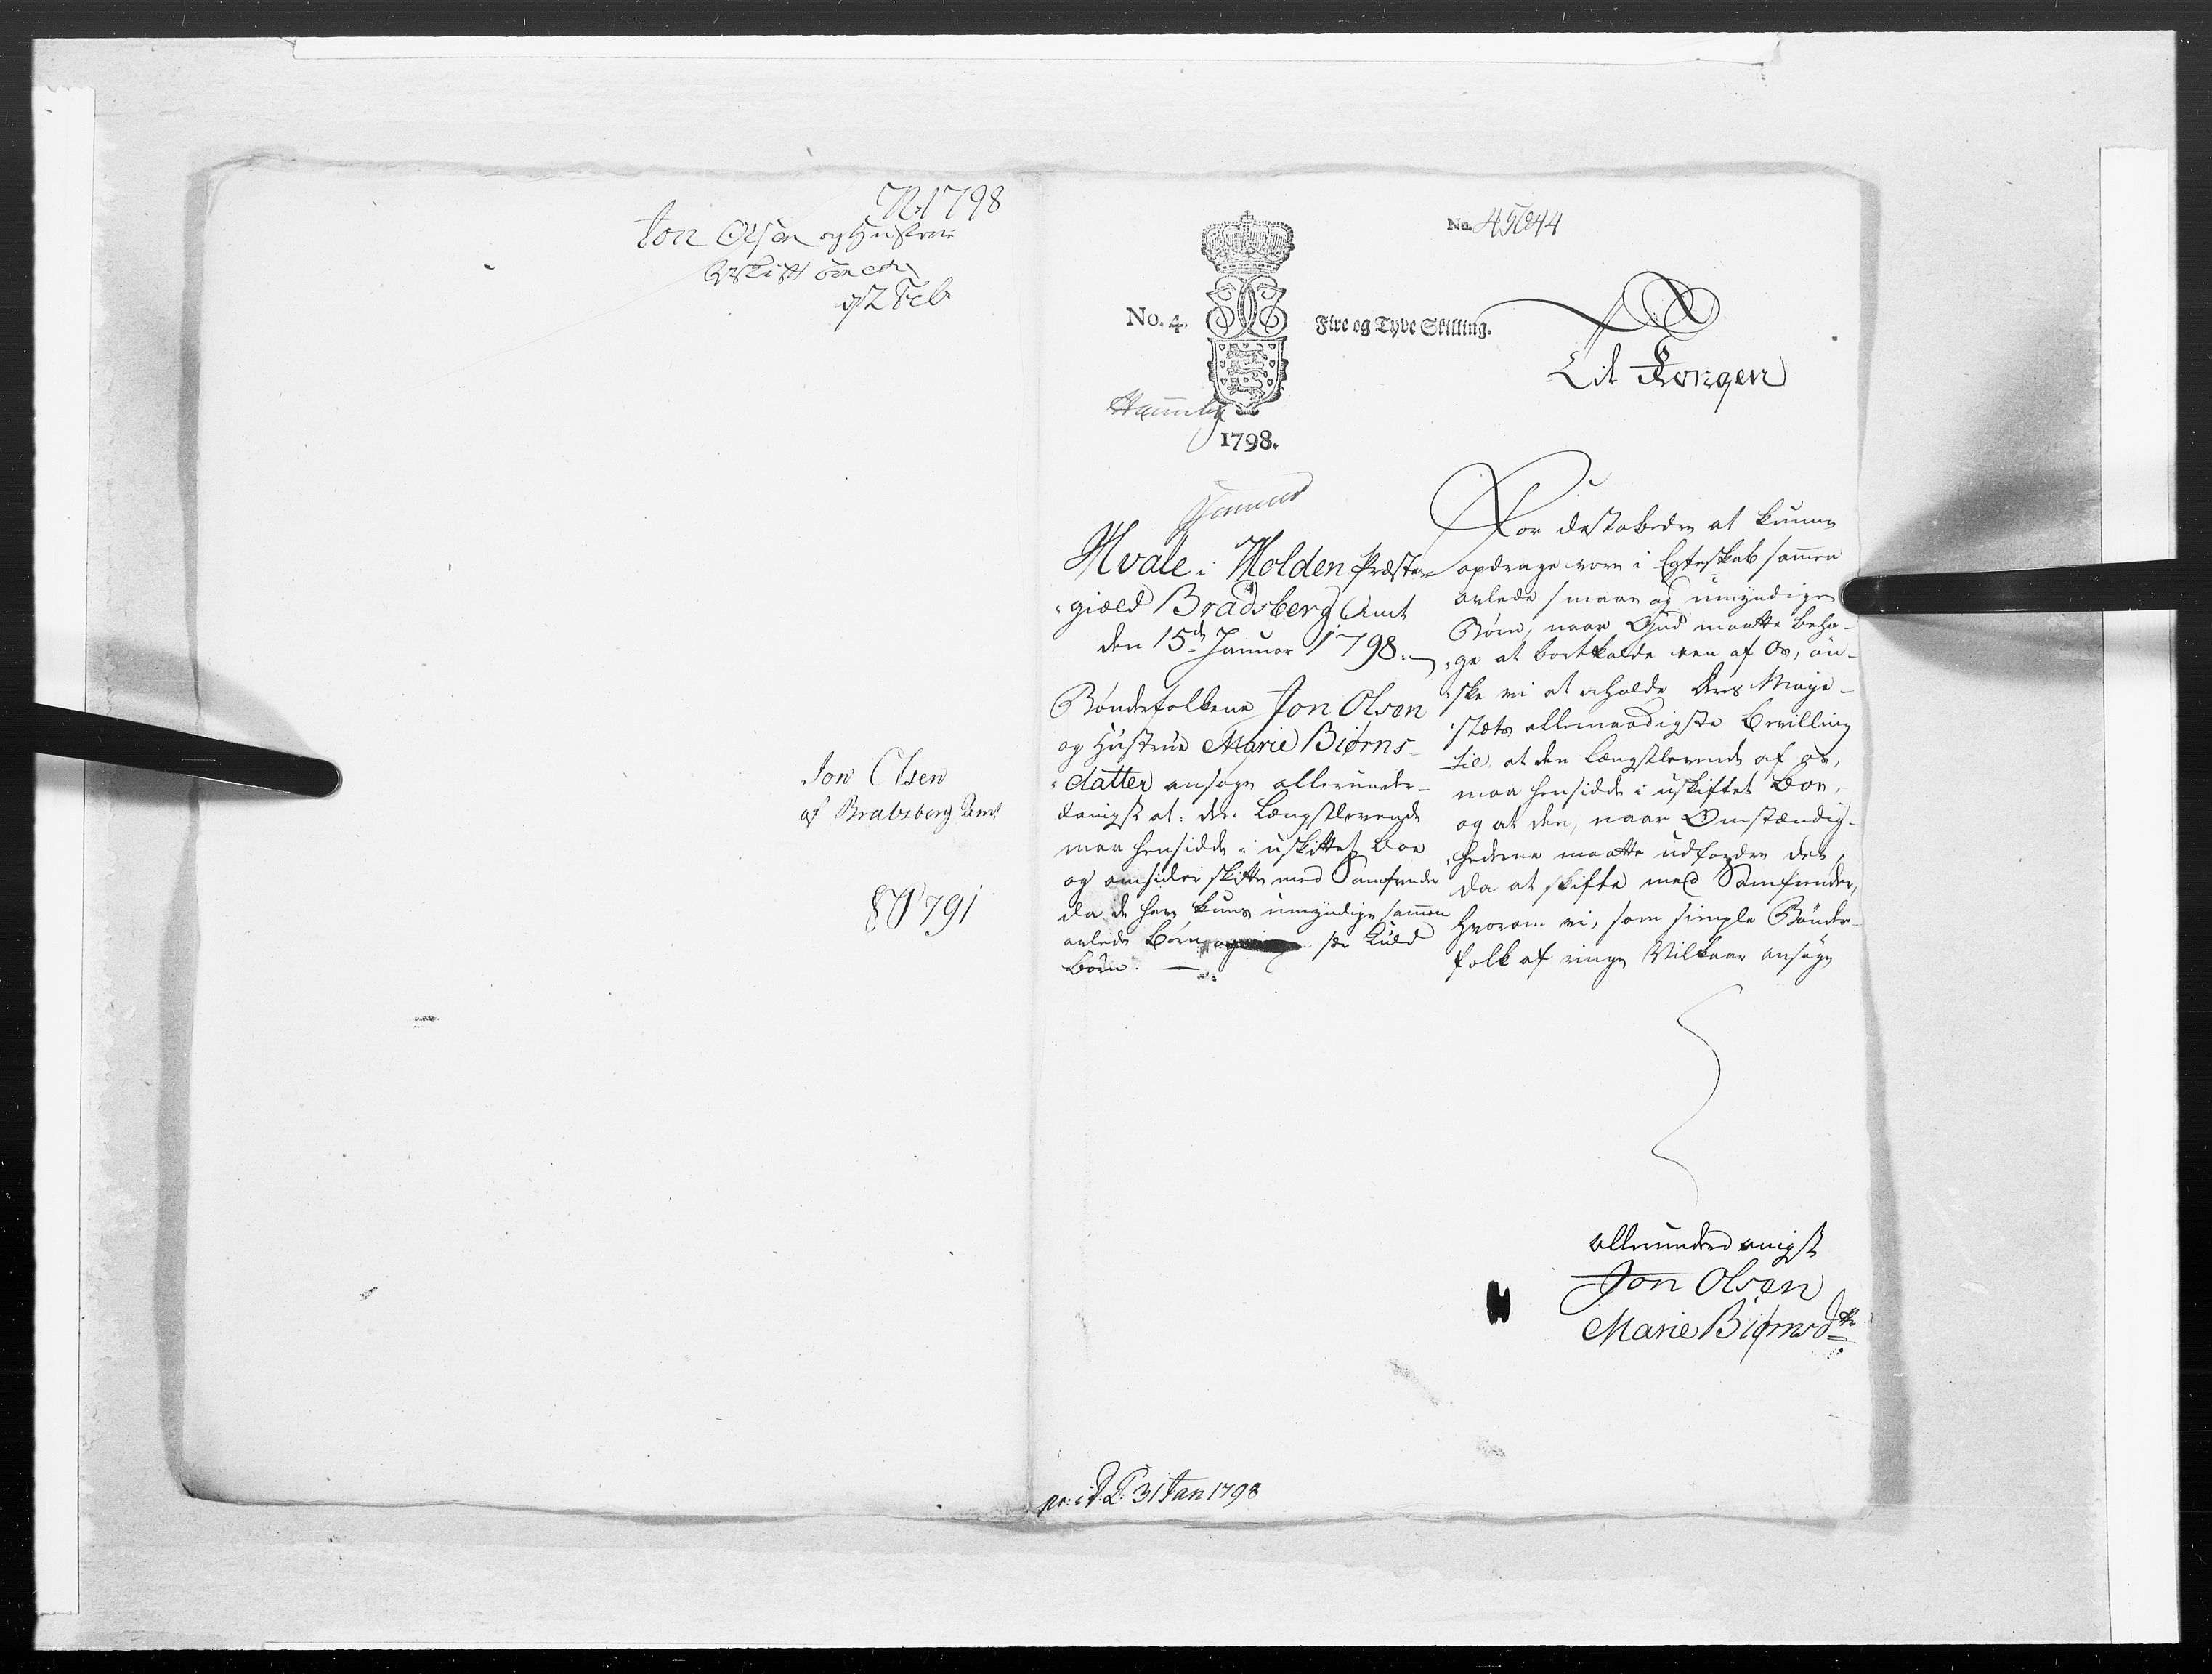 1798
Jon Olsen og Hustrue
Uskift boe
d 2 Feb
Jon Olsen
af Bradsberg Amt
791
No. 45644
No. 4.
Fire og Tyve Skilling.
1798.
Til Kongen
Hvale i Holden Præste-
gield Bradsberg Amt
den 15de Januar 1798.
Bøndefolkene Jon Olsen
og Hustrue Marie Biørns-
datter ansøge allerunder-
danigst at den Længstlevende
maa hensidde i uskiftet Boe
og omsider skifte med Samfrender
da de have kuns umyndige sammen
avlede Børn
Børn.
For destobedre at kunne
opdrage vore i Egteskab sammen
avlede smaae og umyndige
Børn, naar Gud maatte beha-
ge at bortkalde een af Os, øn-
ske vi at erholde Deres Maje-
stæts allernaadigste Bevilling
til, at den Længstlevende af os,
maa hensidde i uskiftet Boe,
og at den, naar Omstændig-
hederne maatte udfordre det,
da at skifte med Samfrender,
hvorom vi, som simple Bønder-
folk af ringe Vilkaar ansøge
allerunderdanigst
Jon Olsen
Marie Biørnsdtr
31 Jan 1798